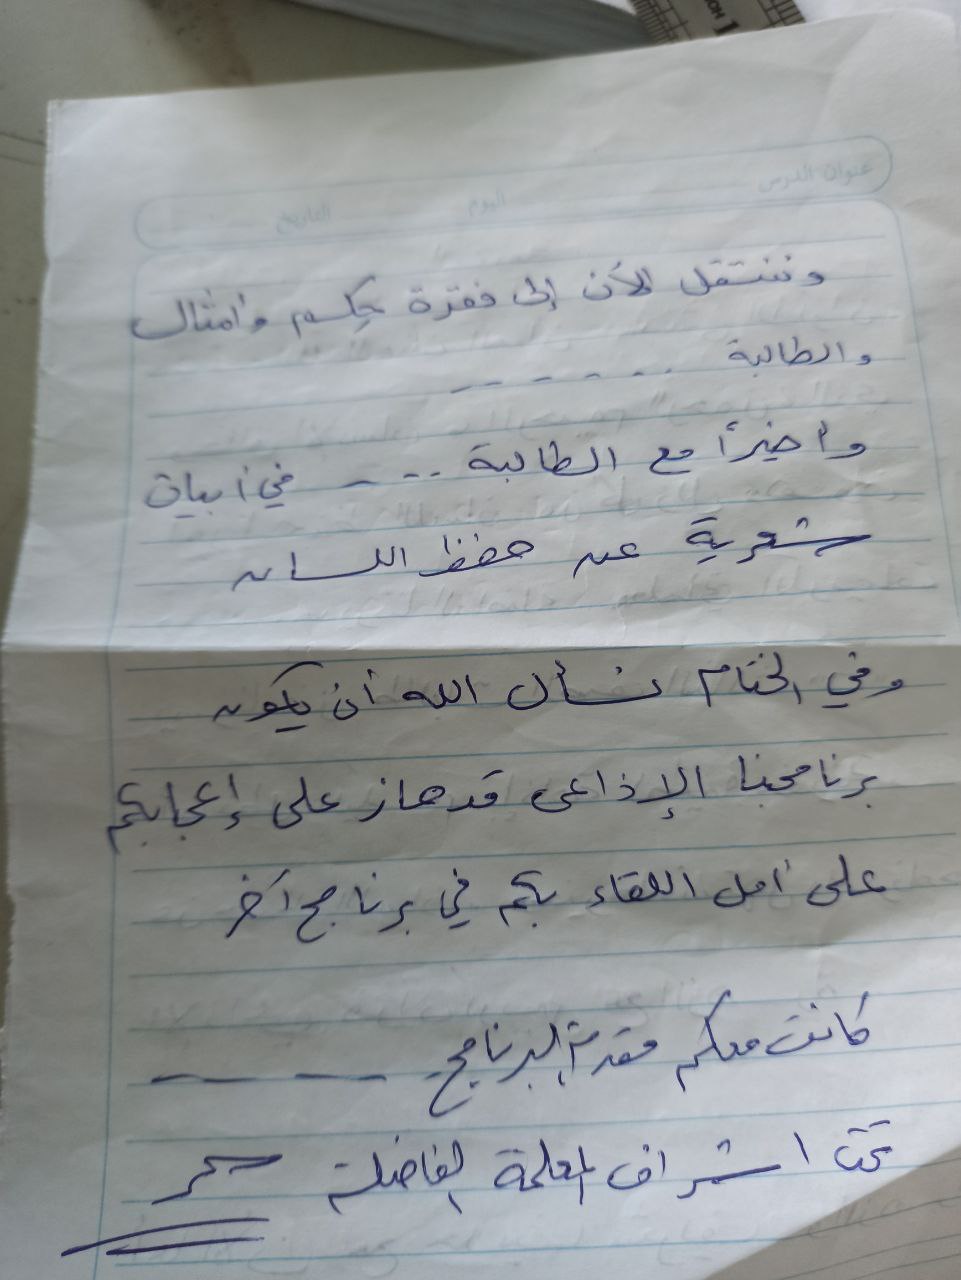 عنوان الدرس اليوم التاريخ
وننتقل الآن إلى فقرة حِكم وأمثال
والطالبة . . - - - -
وأخيراً مع الطالبة . . - - في أبيات
شعرية عن حفظ اللسان
وفي الختام نسأل الله أن يكون
برنامجنا الإذاعي قد حاز على إعجابكم
على أمل اللقاء بكم في برنامج آخر
كانت معكم مقدمة البرنامج - - - -
تحت اشراف المعلمة الفاضلة سحر